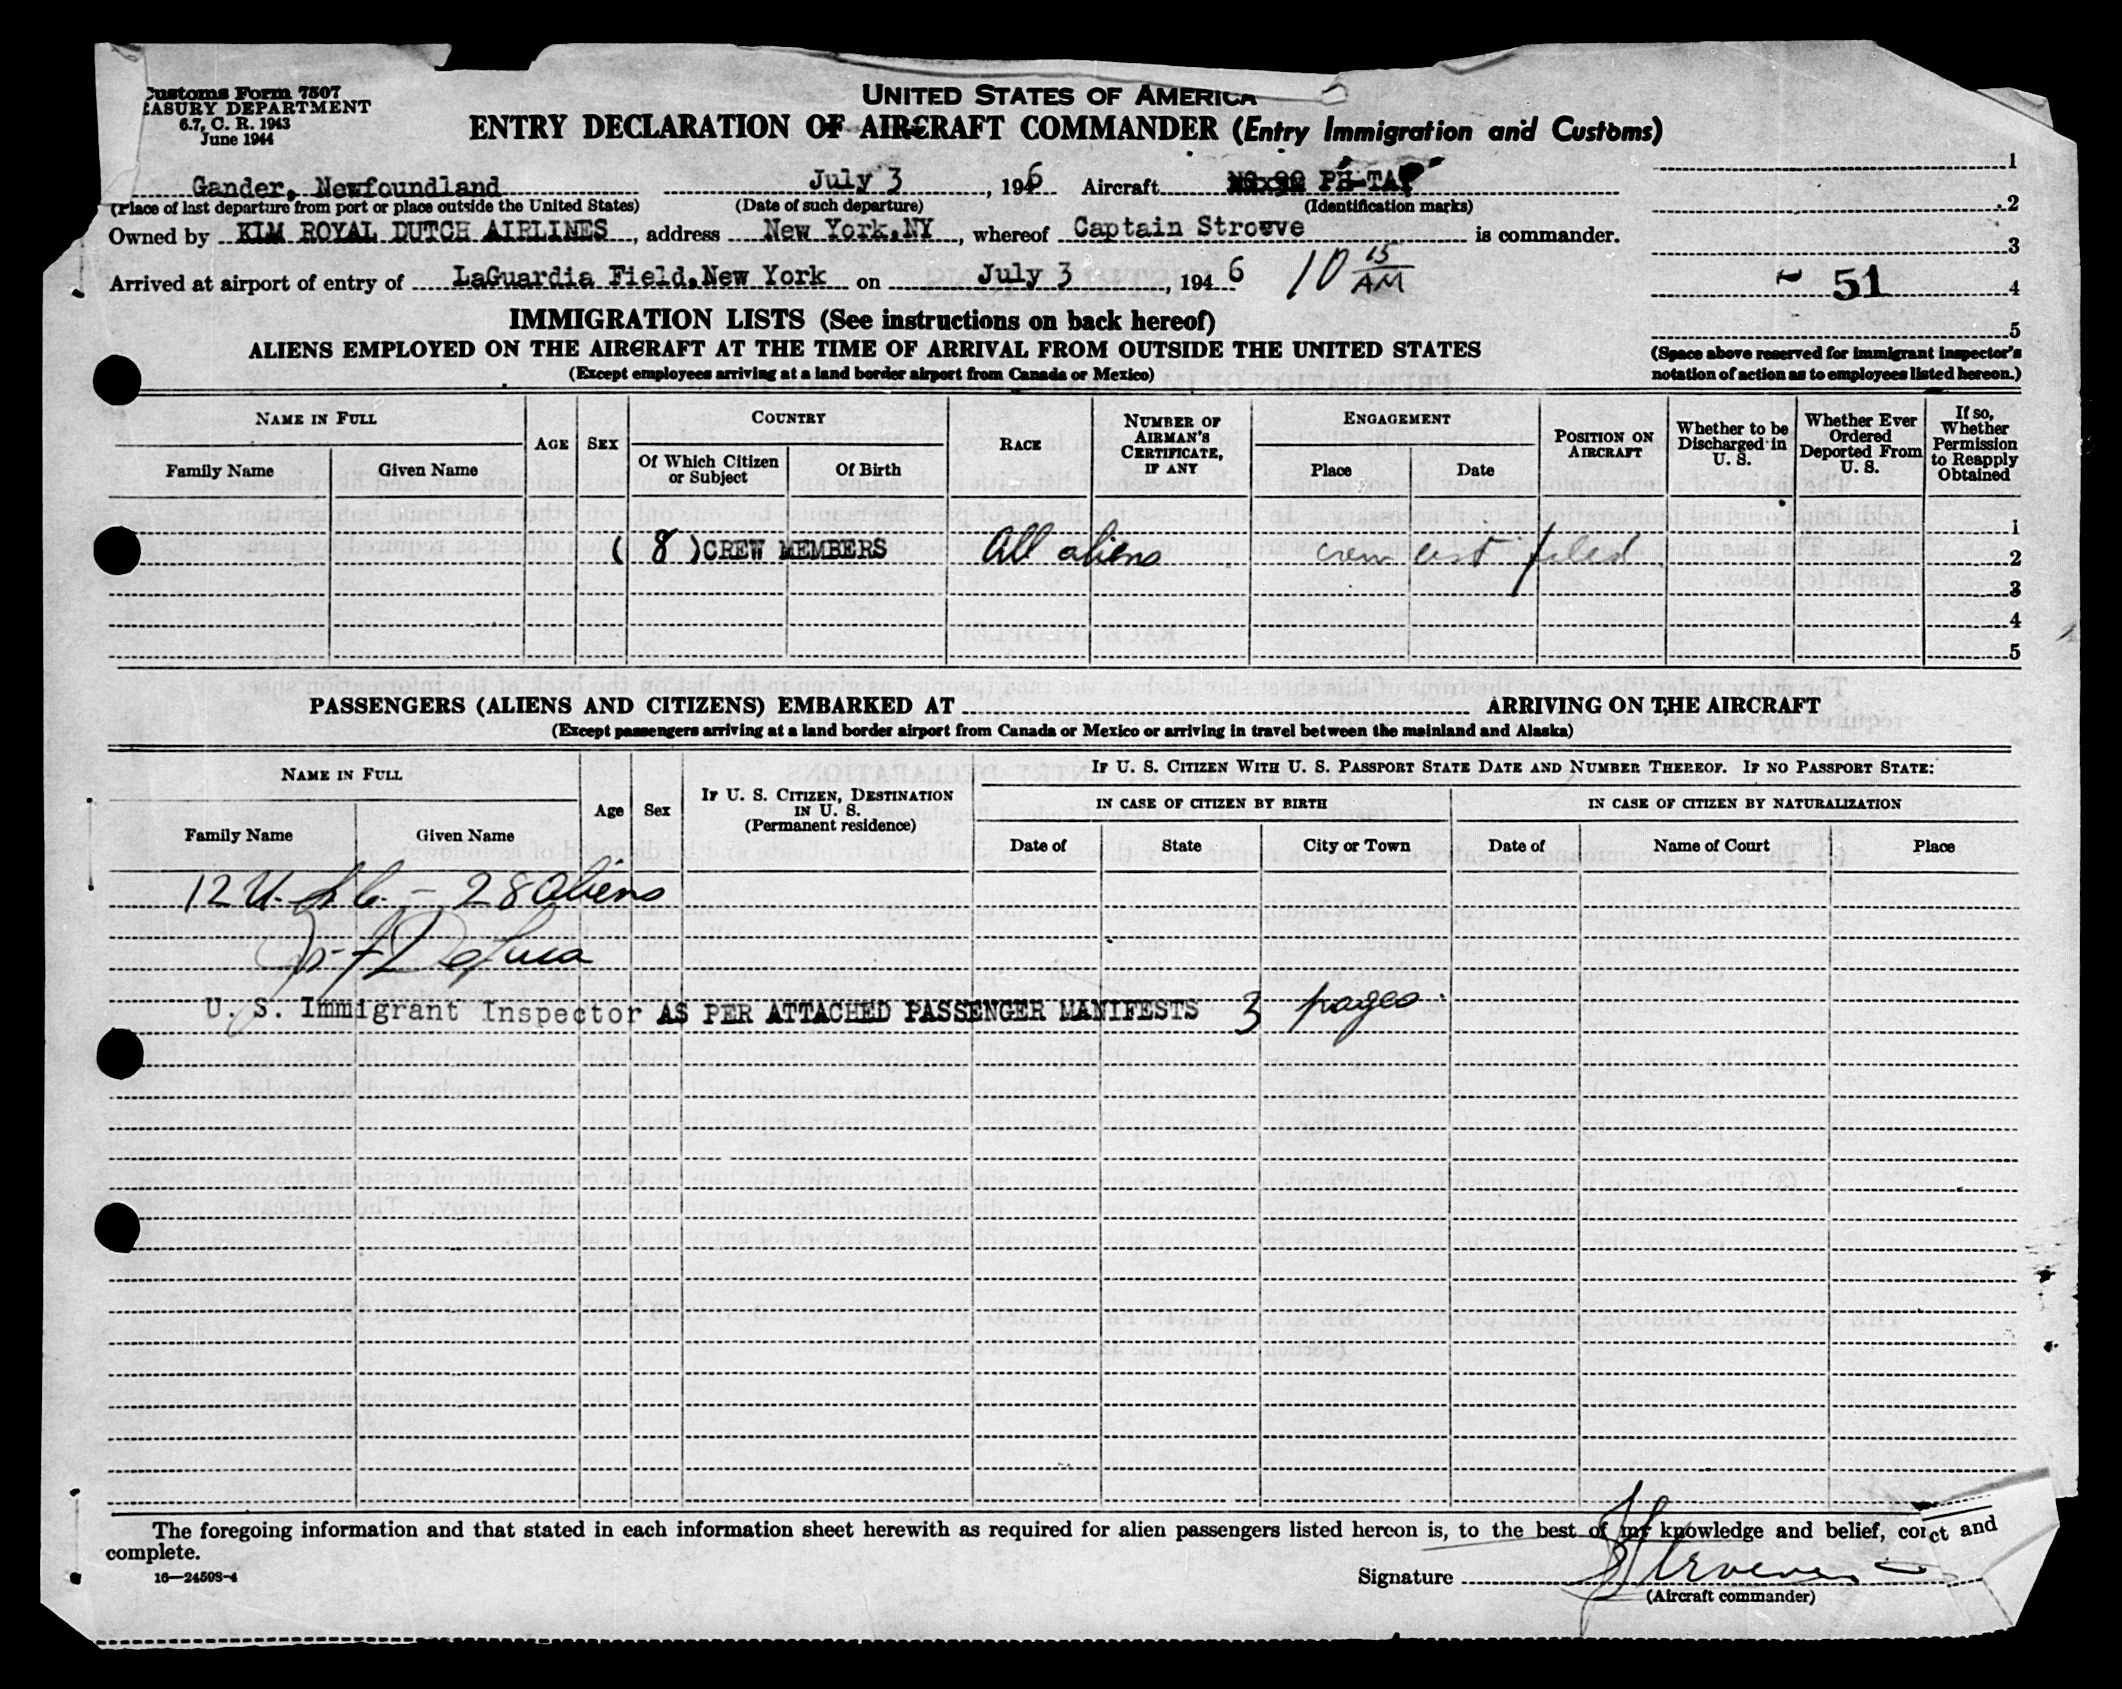 Customs Form 7507
EASURY DEPARTMENT
6.7, C. R. 1943
June 1944
UNITED STATES OF AMERICA
ENTRY DECLARATION OF AIRCRAFT COMMANDER (Entry Immigration and Customs)
Gander, Newfoundland July 3, 1946 Aircraft PH-TA
(Place of last departure from port or place outside the United States) (Date of such departure) (Identification marks)
Owned by KLM ROYAL DUTCH AIRLINES, address New York,NY, whereof Captain Stroeve is commander.
Arrived at airport of entry of LaGuardia Field,New York on July 3, 1946 10 15 AM
1
2
3
- 51 4
5
(Space above reserved for immigrant inspector's
notation of action as to employees listed hereon.)
IMMIGRATION LISTS (See instructions on back hereof)
ALIENS EMPLOYED ON THE AIRCRAFT AT THE TIME OF ARRIVAL FROM OUTSIDE THE UNITED STATES
(Except employees arriving at a land border airport from Canada or Mexico)
NAME IN FULL
Family Name Given Name
AGE
SEX
COUNTRY
Of Which Citizen or Subject
Of Birth
RACE
NUMBER OF AIRMAN'S CERTIFICATE, IF ANY
ENGAGEMENT
Place Date
POSITION ON AIRCRAFT
Whether to be Discharged in U. S.
Whether Ever Ordered Deported From U. S.
If so, Whether Permission to Reapply Obtained
1
( 8 )CREW MEMBERS All aliens crew list filed 2
3
4
5
PASSENGERS (ALIENS AND CITIZENS) EMBARKED AT ARRIVING ON THE AIRCRAFT
(Except passengers arriving at a land border airport from Canada or Mexico or arriving in travel between the mainland and Alaska)
NAME IN FULL
Family Name Given Name
Age
Sex
IF U. S. CITIZEN, DESTINATION IN U. S.
(Permanent residence)
IF U. S. CITIZEN WITH U. S. PASSPORT STATE DATE AND NUMBER THEREOF. IF NO PASSPORT STATE:
IN CASE OF CITIZEN BY BIRTH IN CASE OF CITIZEN BY NATURALIZATION
Date of State City or Town Date of Name of Court Place
12 U.S.C. - 28 aliens
DeLuca
U. S. Immigrant Inspector AS PER ATTACHED PASSENGER MANIFESTS 3 pages
The foregoing information and that stated in each information sheet herewith as required for alien passengers listed hereon is, to the best of my knowledge and belief, cor ct and
complete.
16—24598-4
Signature Stroeve
(Aircraft commander)